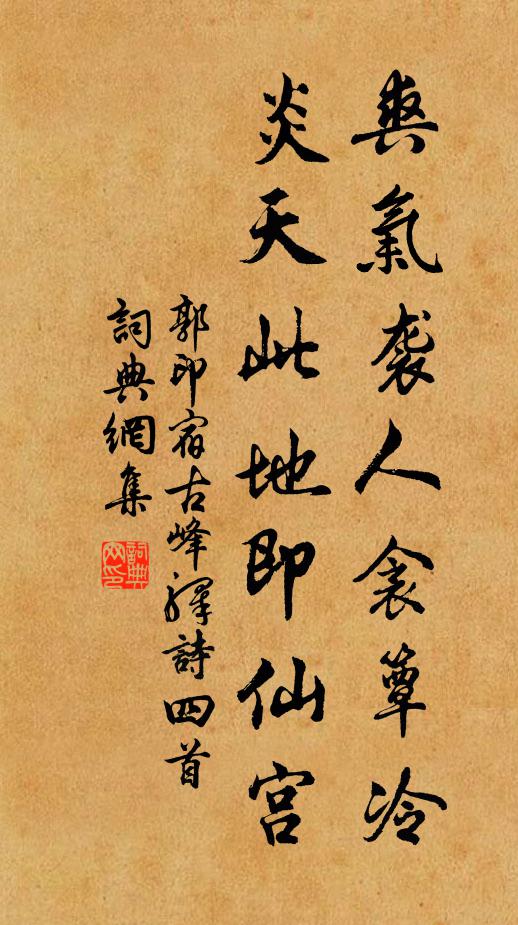 爽氣袭人衾簟冷
炎天此地即仙宫
郭印宿古峰驛詩四首
詞典網集
詞典
网印